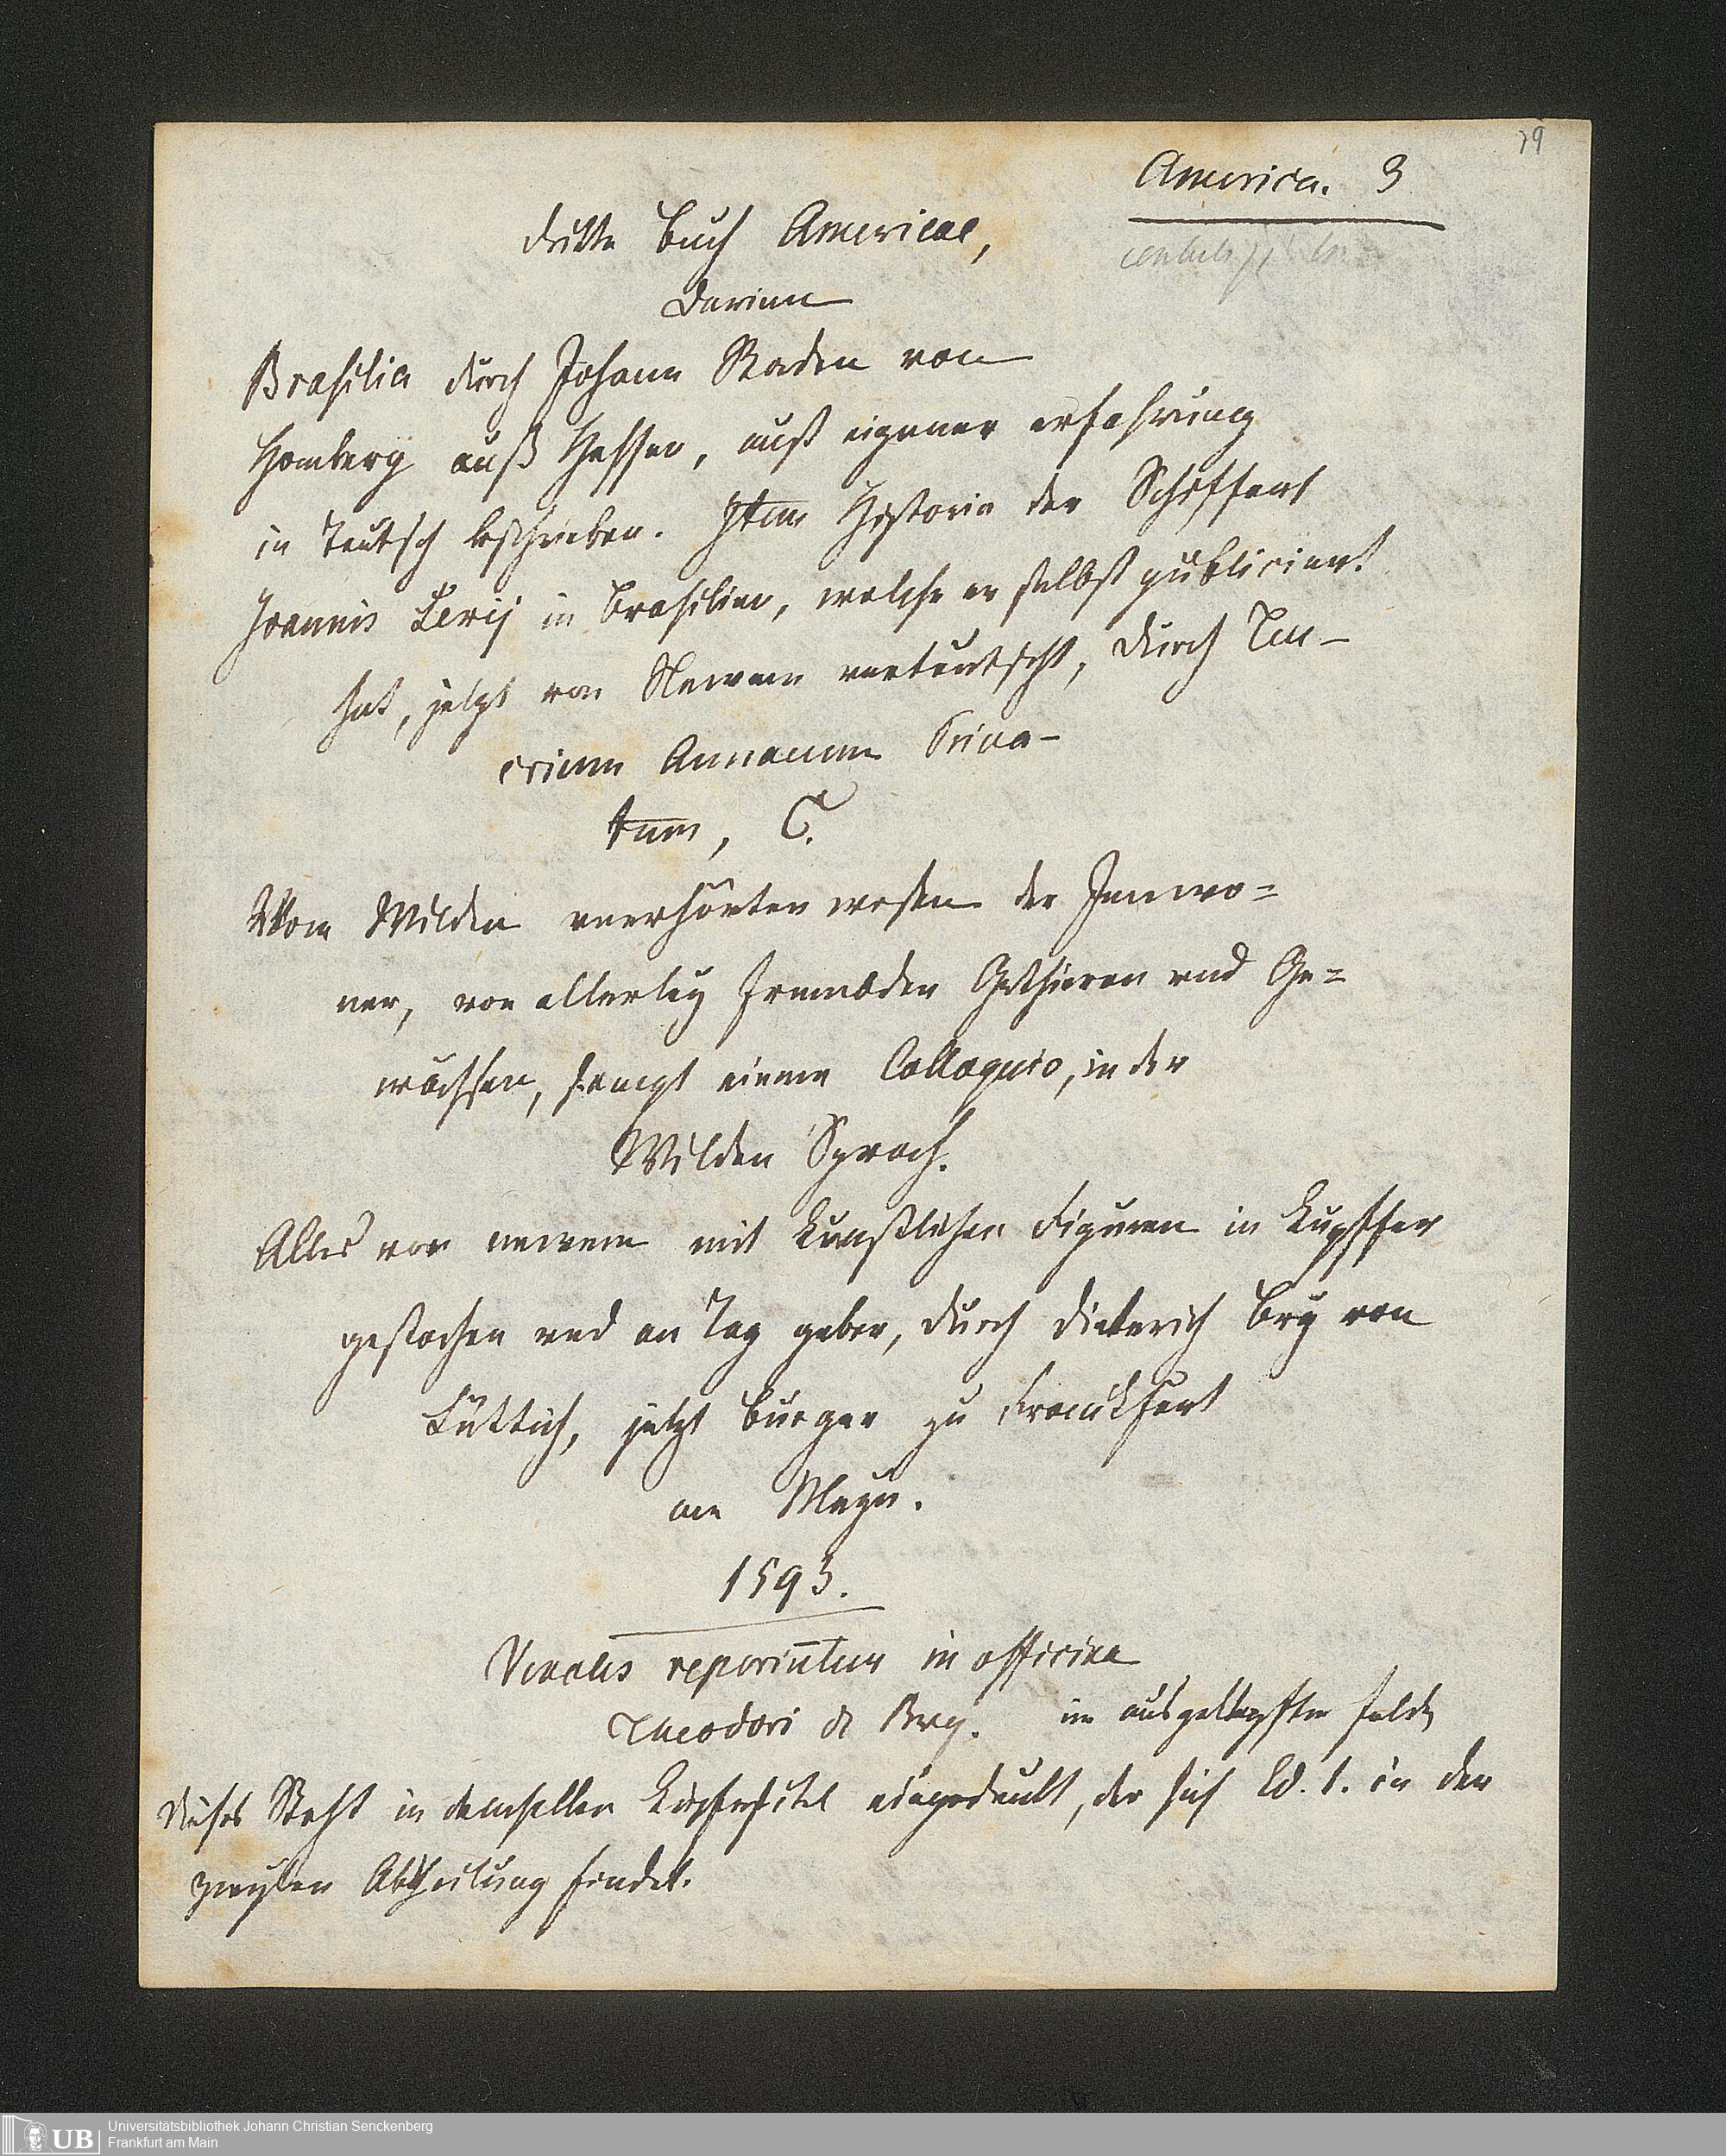 79
America. 3
Dritte Buch Americae,
Darinn
Brasilia durch Johann Staden von
Homberg auß Hessen, auß eigener erfahrung
in Teutsch beschrieben. Item Historia der Schiffart
Joannis Lerij in Brasilien, welche er selbst publiciert
hat, jetzt von Newem verteutscht, Durch Teu-
crium Annaeum Priua-
tum, C.
Vom Wilden vnerhörten wesen der Innwo=
ner, von allerley frembden Gethieren vnd Ge=
wächsen, sampt einem Colloquio, in der
Wilden Sprach.
Alles von newem mit Kunstlichen Figuren in Kupffer
gestochen vnd an Tag geben, Durch Dieterich Bry von
Lüttich, jetzt Burger zu Franckfurt
am Meyn.
1593.
Venales reperiūtur in officina
Theodori de Bry. im ausgeklopften Felde
Dieses Steht in demselben Kupfertitel eingedruckt, der sich Ed. 1. in der
zweyten Abtheilung findet.
Universitätsbibliothek Johann Christian Senckenberg
Frankfurt am Main
UB